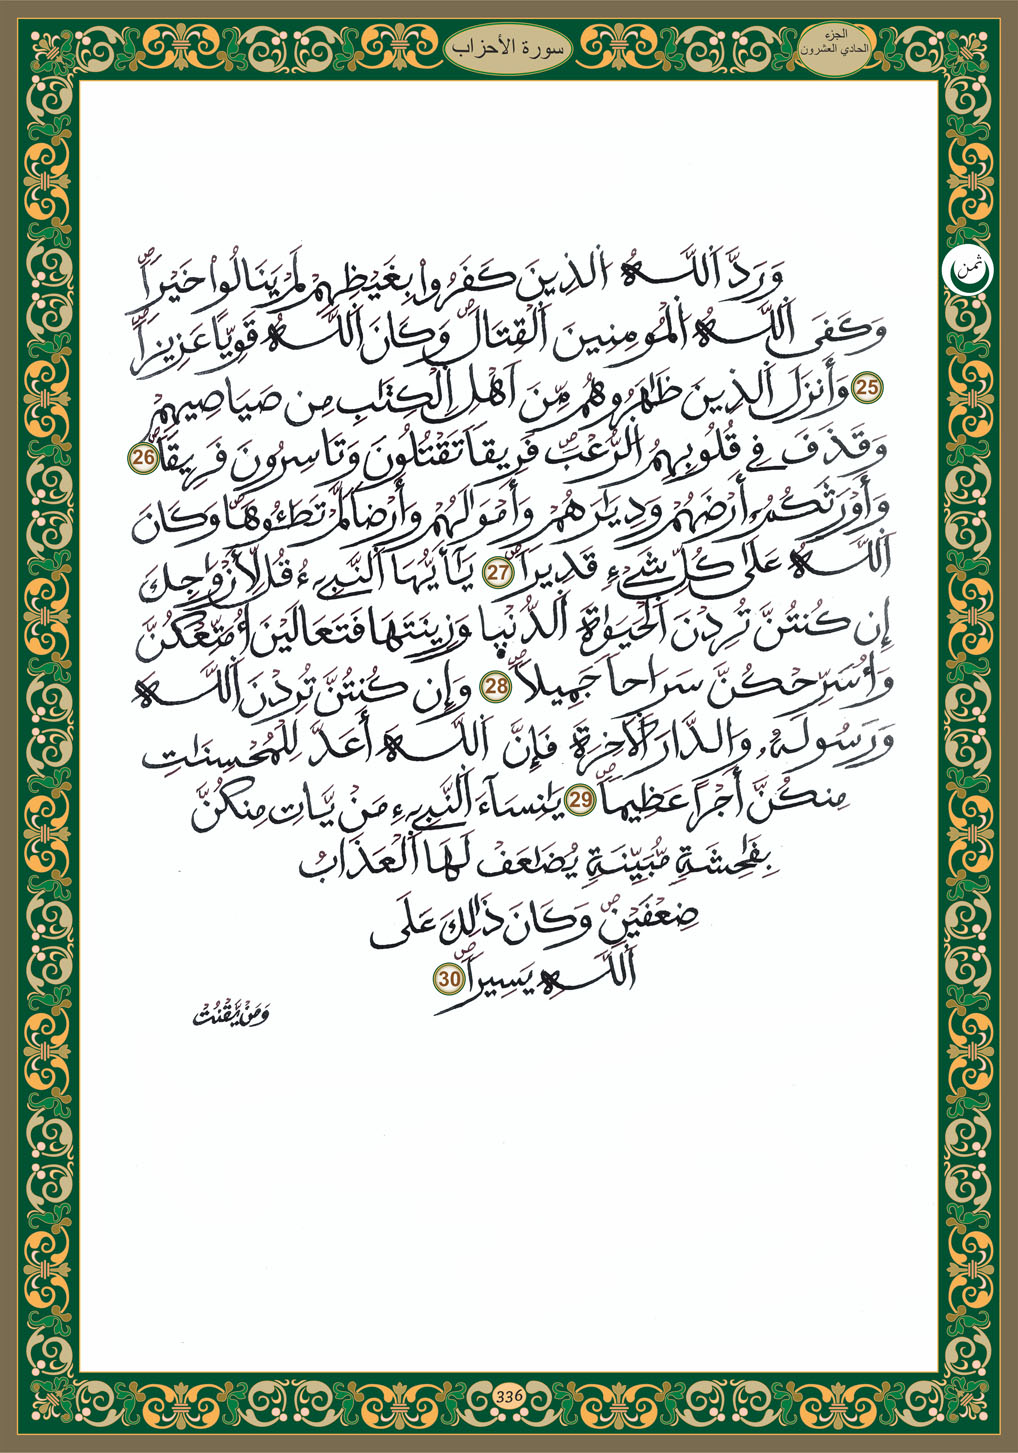 الجزء
الحادي العشرون
سورة الأحزاب
ثمن
وَرَدَّ اَللَّهُ اُلذِينَ كَفَرُواْ بِغَيْظِهِمْ لَمْ يَنَالُواْ خَيْراٗۖ
وَكَفَى اَللَّهُ اُلْمُومِنِينَ اَلْقِتَالَۖ وَكَانَ اَللَّهُ قَوِيّاً عَزِيزاٗۖ
25 وَأَنزَلَ اَلذِينَ ظَٰهَرُوهُم مِّنَ اَهْلِ اِلْكِتَٰبِ مِن صَيَاصِيهِمْ
وَقَذَفَ فِے قُلُوبِهِمُ اُلرُّعْبَۖ فَرِيقاٗ تَقْتُلُونَ وَتَاسِرُونَ فَرِيقاٗۖ 26
وَأَوْرَثَكُمُۥٓ أَرْضَهُمْ وَدِيَٰرَهُمْ وَأَمْوَٰلَهُمْ وَأَرْضاٗ لَّمْ تَطَـُٔوهَاۖ وَكَانَ
اَللَّهُ عَلَىٰ كُلِّ شَےْءٖ قَدِيراٗۖ 27 يَٰٓأَيُّهَا اَلنَّبِےٓءُ قُل لِّأَزْوَٰجِكَ
إِن كُنتُنَّ تُرِدْنَ اَلْحَيَوٰةَ اَلدُّنْيَا وَزِينَتَهَا فَتَعَالَيْنَ أُمَتِّعْكُنَّ
وَأُسَرِّحْكُنَّ سَرَاحاٗ جَمِيلاٗۖ 28 وَإِن كُنتُنَّ تُرِدْنَ اَللَّهَ
وَرَسُولَهُۥ وَالدَّارَ اَلَاخِرَةَ فَإِنَّ اَللَّهَ أَعَدَّ لِلْمُحْسِنَٰتِ
مِنكُنَّ أَجْراً عَظِيماٗۖ 29 يَٰنِسَآءَ اَلنَّبِےٓءِ مَنْ يَّاتِ مِنكُنَّ
بِفَٰحِشَةٖ مُّبَيِّنَةٖ يُضَٰعَفْ لَهَا اَلْعَذَابُ
ضِعْفَيْنِۖ وَكَانَ ذَٰلِكَ عَلَى
اَللَّهِ يَسِيراٗۖ 30
وَمَنْ يَّقْنُتْ
336